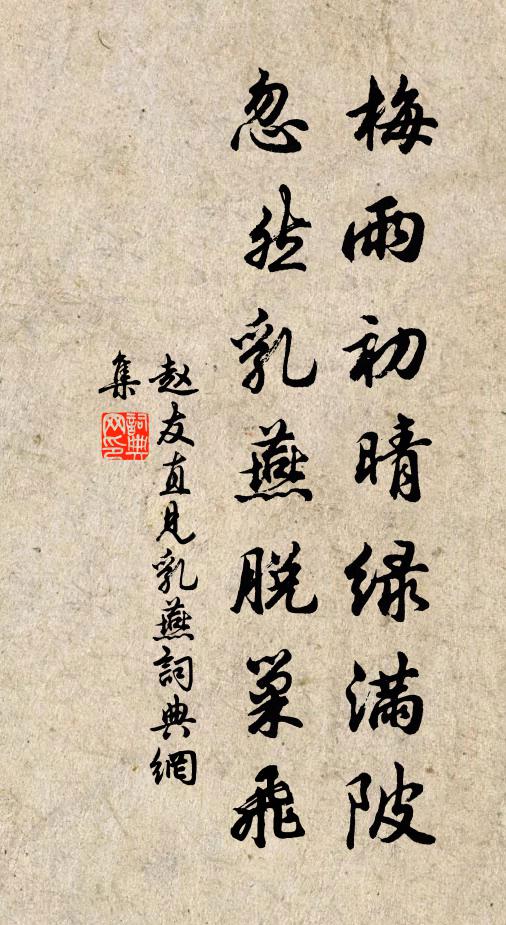 梅雨初晴绿满陂
忽然乳燕脱巢飛
赵友直见乳燕詞典網
集
詞典
网印